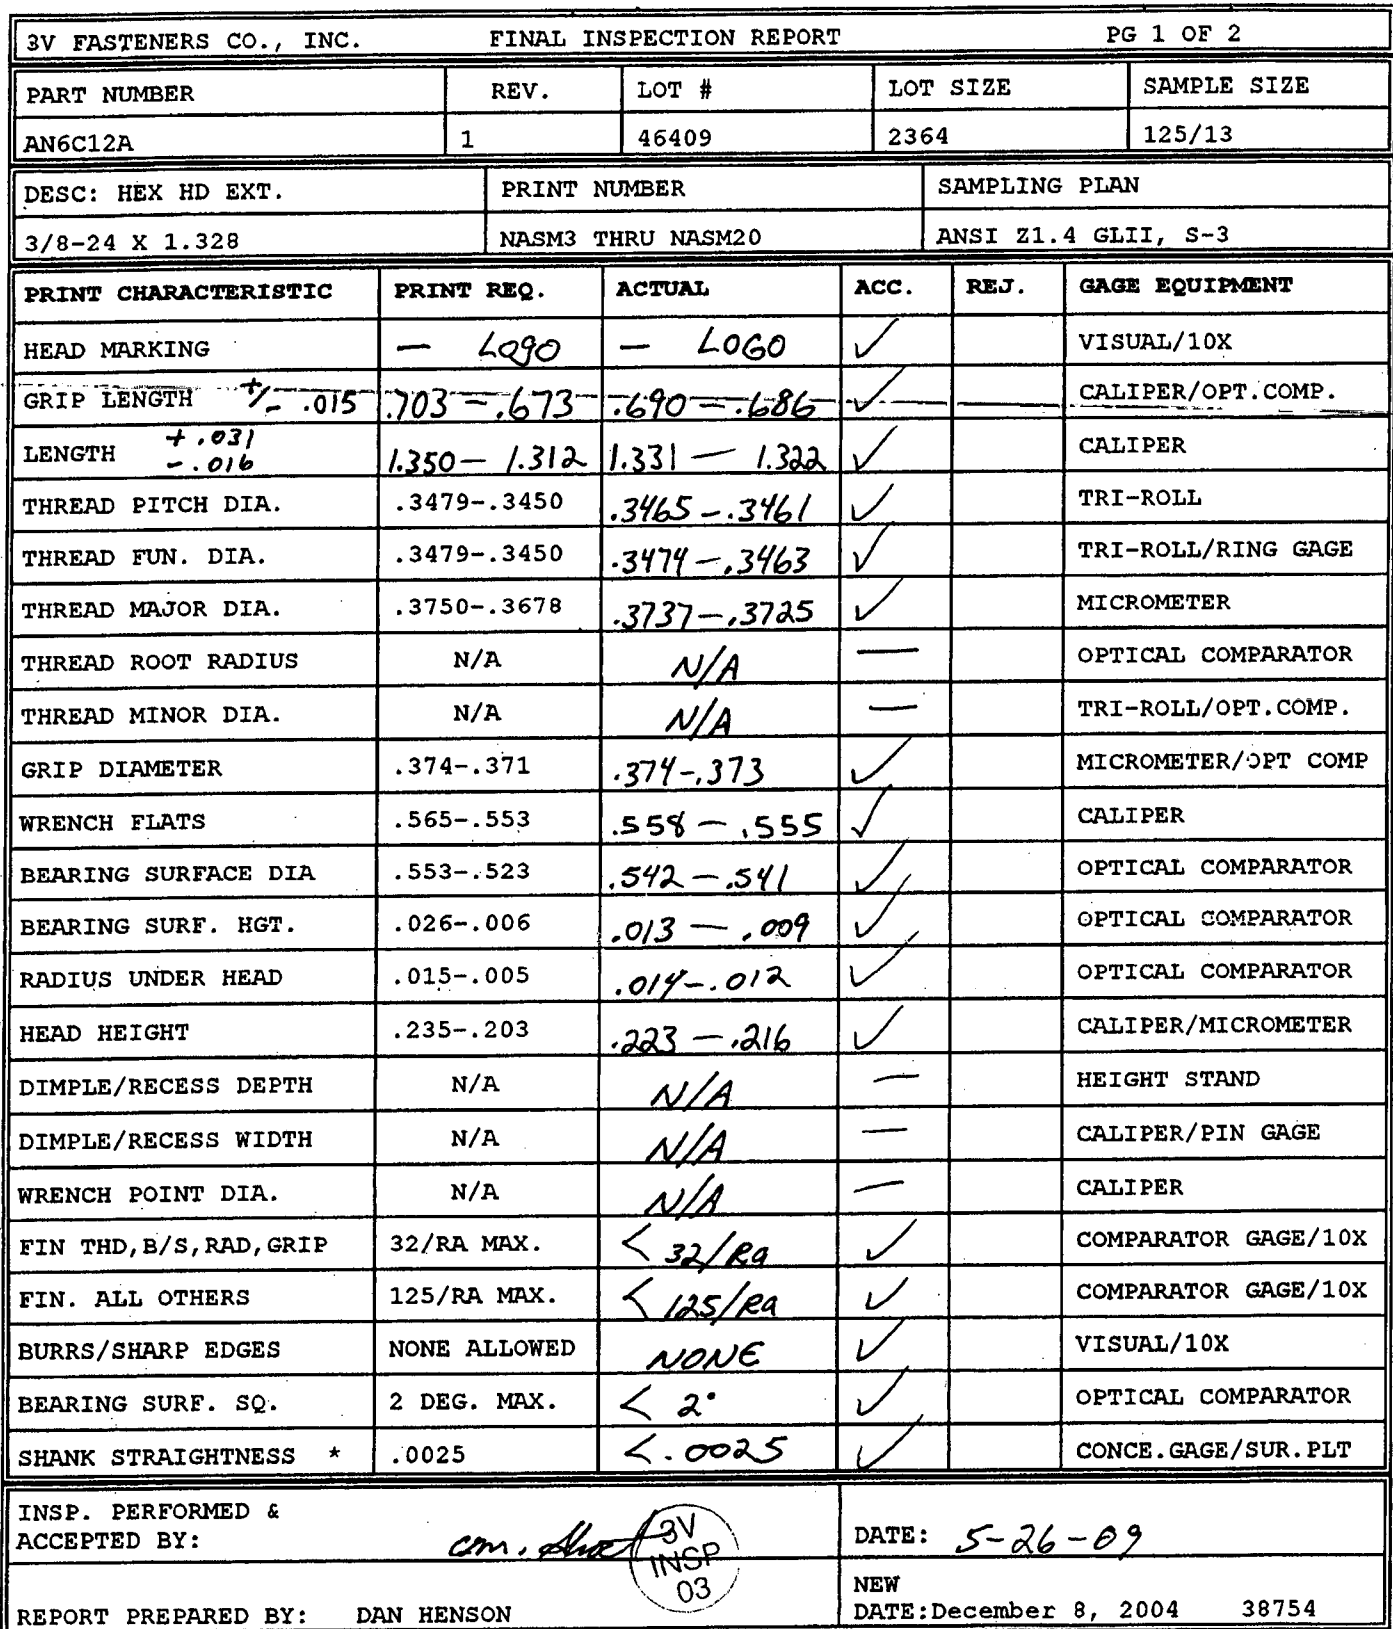 3V FASTENERS CO., INC. FINAL INSPECTION REPORT PG 1 OF 2
PART NUMBER REV. LOT # LOT SIZE SAMPLE SIZE
AN6C12A 1 46409 2364 125/13
DESC: HEX HD EXT. PRINT NUMBER SAMPLING PLAN
3/8-24 X 1.328 NASM3 THRU NASM20 ANSI Z1.4 GLII, S-3
PRINT CHARACTERISTIC PRINT REQ. ACTUAL ACC. REJ. GAGE EQUIPMENT
HEAD MARKING — LOGO — LOGO ✓ VISUAL/10X
GRIP LENGTH +/- .015 .703 - .673 .690 - .686 ✓ CALIPER/OPT.COMP.
LENGTH +.031 -.016 1.350 - 1.312 1.331 - 1.322 ✓ CALIPER
THREAD PITCH DIA. .3479-.3450 .3465 - .3461 ✓ TRI-ROLL
THREAD FUN. DIA. .3479-.3450 .3474 - .3463 ✓ TRI-ROLL/RING GAGE
THREAD MAJOR DIA. .3750-.3678 .3737 - .3725 ✓ MICROMETER
THREAD ROOT RADIUS N/A N/A — OPTICAL COMPARATOR
THREAD MINOR DIA. N/A N/A — TRI-ROLL/OPT.COMP.
GRIP DIAMETER .374-.371 .374-.373 ✓ MICROMETER/OPT COMP
WRENCH FLATS .565-.553 .558 - .555 ✓ CALIPER
BEARING SURFACE DIA .553-.523 .542 - .541 ✓ OPTICAL COMPARATOR
BEARING SURF. HGT. .026-.006 .013 - .009 ✓ OPTICAL COMPARATOR
RADIUS UNDER HEAD .015-.005 .014-.012 ✓ OPTICAL COMPARATOR
HEAD HEIGHT .235-.203 .223 - .216 ✓ CALIPER/MICROMETER
DIMPLE/RECESS DEPTH N/A N/A — HEIGHT STAND
DIMPLE/RECESS WIDTH N/A N/A — CALIPER/PIN GAGE
WRENCH POINT DIA. N/A N/A — CALIPER
FIN THD,B/S,RAD,GRIP 32/RA MAX. < 32/Ra ✓ COMPARATOR GAGE/10X
FIN. ALL OTHERS 125/RA MAX. < 125/Ra ✓ COMPARATOR GAGE/10X
BURRS/SHARP EDGES NONE ALLOWED NONE ✓ VISUAL/10X
BEARING SURF. SQ. 2 DEG. MAX. < 2° ✓ OPTICAL COMPARATOR
SHANK STRAIGHTNESS * .0025 <.0025 ✓ CONCE.GAGE/SUR.PLT
INSP. PERFORMED &
ACCEPTED BY: DATE: 5-26-09
3V
INSP
03
NEW
REPORT PREPARED BY: DAN HENSON DATE:December 8, 2004 38754